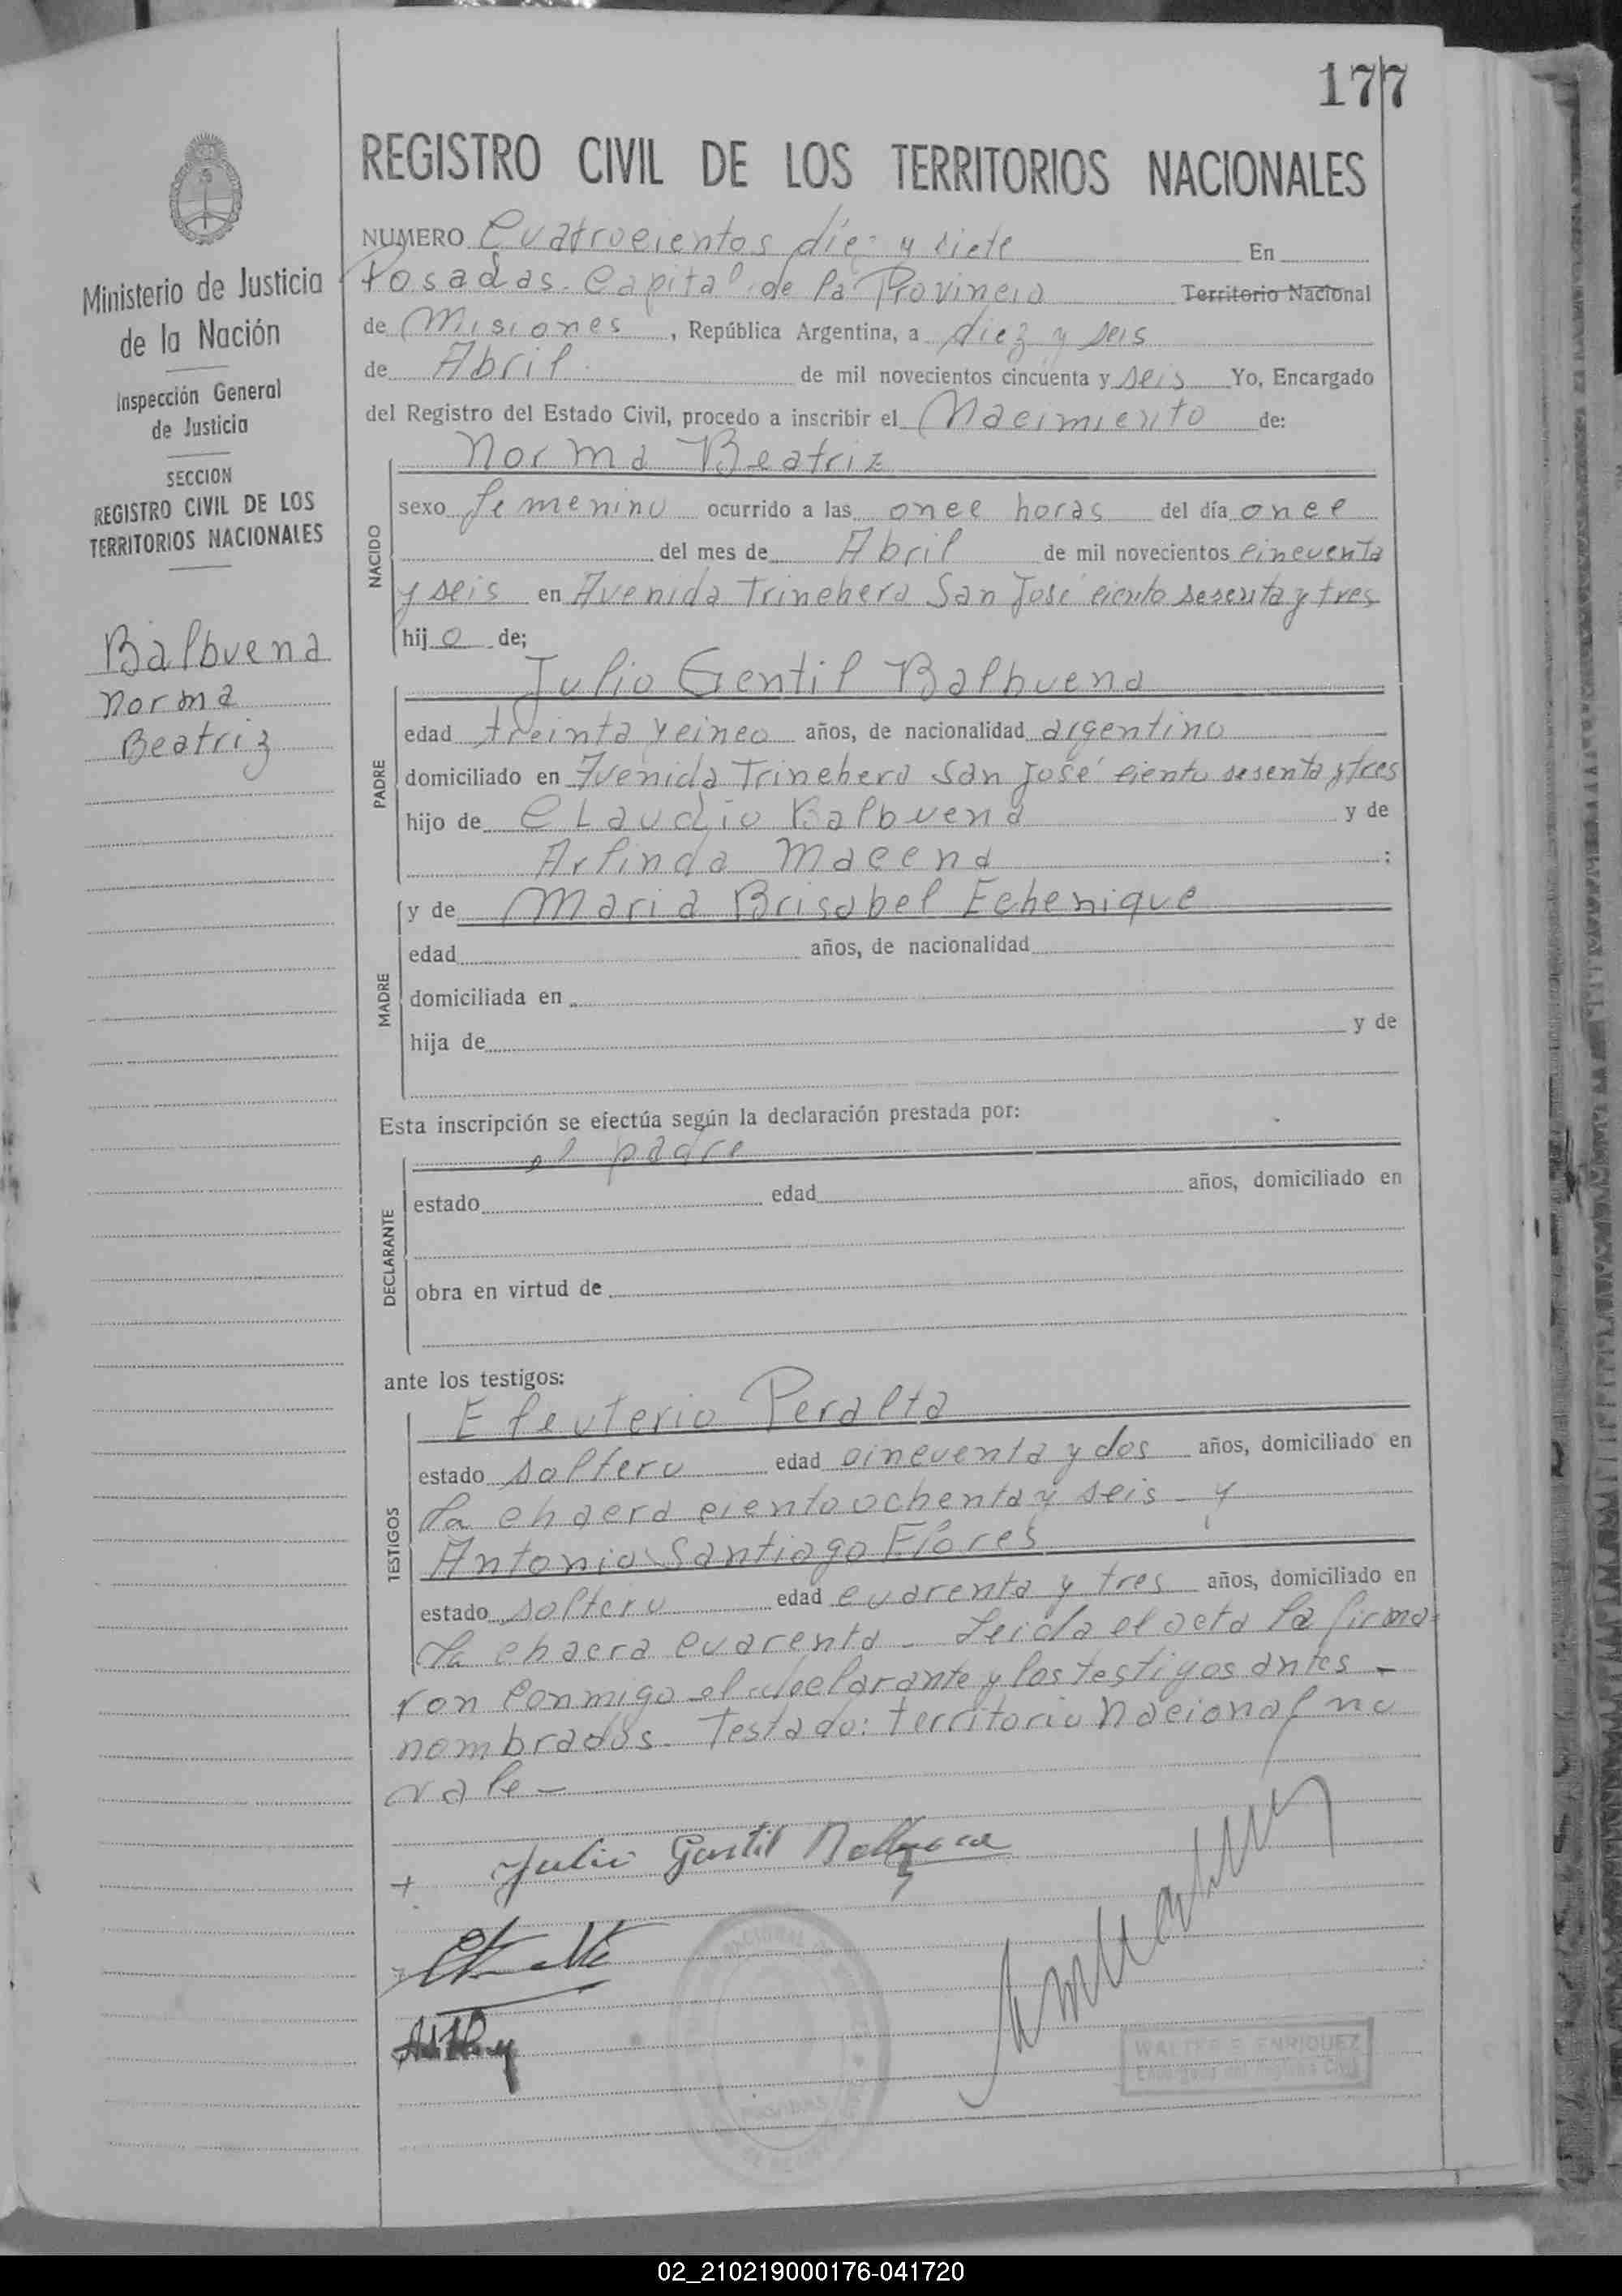 177
REGISTRO CIVIL DE LOS TERRITORIOS NACIONALES
Ministerio de Justicia
de la Nación
Inspección General
de Justicia
SECCION
REGISTRO CIVIL DE LOS
TERRITORIOS NACIONALES
Balbuena
Norma
Beatriz
NUMERO Cuatrocientos diez y siete En
Posadas. Capital de la Provincia Territorio Nacional
de Misiones, República Argentina, a diez y seis
de Abril de mil novecientos cincuenta y seis Yo, Encargado
del Registro del Estado Civil, procedo a inscribir el Nacimiento de:
NACIDO
Norma Beatriz
sexo femenino ocurrido a las once horas del día once
del mes de Abril de mil novecientos cincuenta
y seis en Avenida Trinchera San José ciento sesenta y tres
hijo de;
PADRE
Julio Gentil Balbuena
edad treinta y cinco años, de nacionalidad argentino
domiciliado en Avenida Trinchera San José ciento sesenta y tres
hijo de Claudio Balbuena y de
Arlinda Macena ;
MADRE
y de Maria Brisabel Echenique
edad años, de nacionalidad
domiciliada en
hija de y de
Esta inscripción se efectúa según la declaración prestada por:
DECLARANTE
el padre
estado edad años, domiciliado en
obra en virtud de
ante los testigos:
TESTIGOS
Eleuterio Peralta
estado soltero edad cincuenta y dos años, domiciliado en
la chacra ciento ochenta y seis - y
Antonio Santiago Flores
estado soltero edad cuarenta y tres años, domiciliado en
la chacra cuarenta - Leida el acta la firma-
ron conmigo el declarante y los testigos antes -
nombrados. Testado: territorio Nacional no
vale -
+ Julio Gentil Balbuena
NACIONAL
POSADAS
WALTER E. ENRIQUEZ
Encargado del Registro Civil
02_210219000176-041720